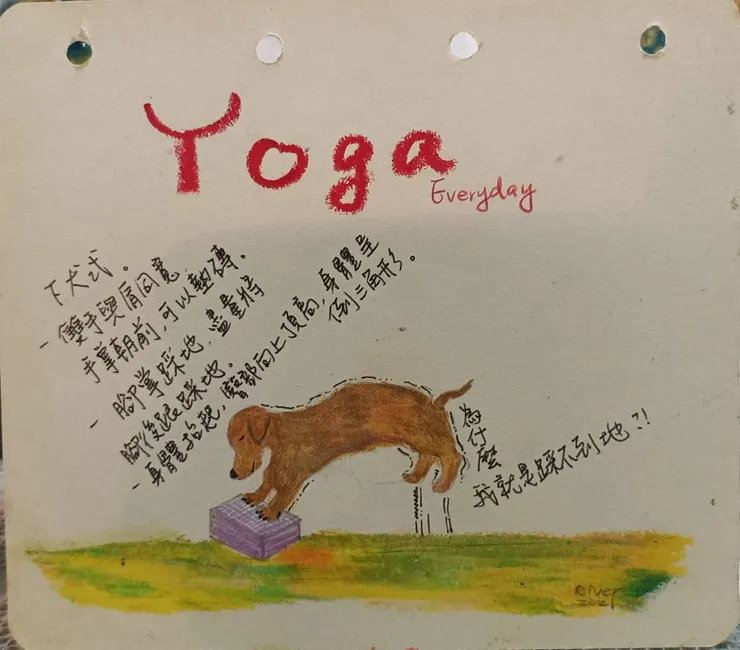 Yoga
Everyday
下犬式。
- 雙手與肩同寬
手掌朝前,可以墊磚。
- 腳掌踩地,盡量將
腳後跟踩地。
- 身體抬起,臀部向上頂高,身體呈
倒三角形。
為什麼
我就是踩不到地?!
River
2021